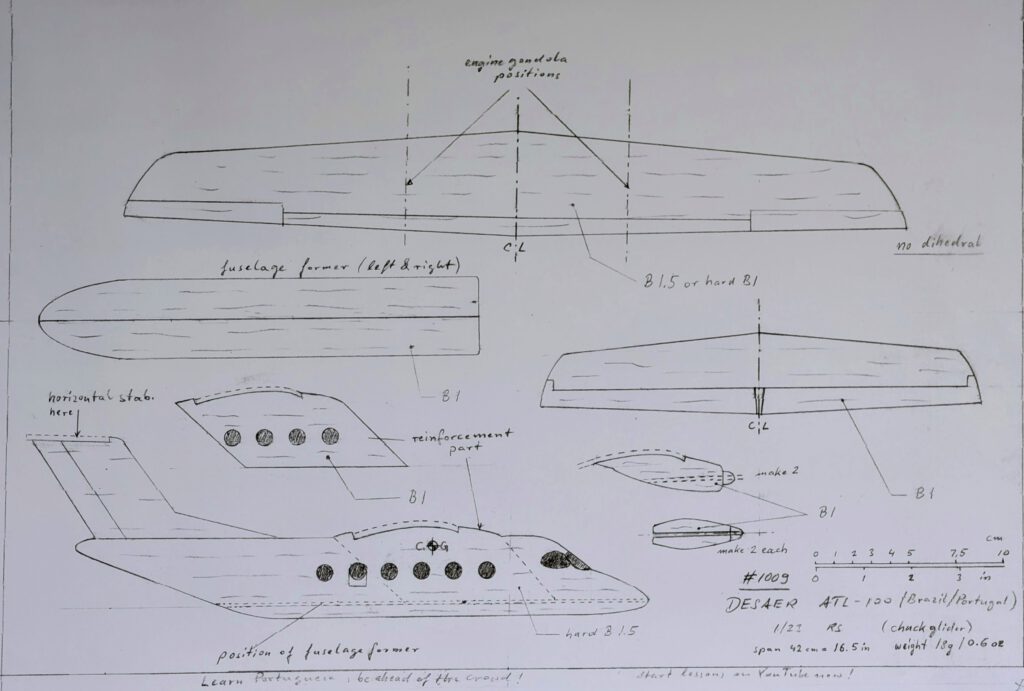 engine gondola
positions
C L
no dihedral
fuselage former (left & right)
B 1.5 or hard B1
B1
horizontal stab.
here
reinforcement
part
B1
C L
make 2
B1
B1
make 2 each
C G
cm
0 1 2 3 4 5 7,5 10
0 1 2 3 in
#1009
DESAER ATL-100 (Brazil/Portugal)
1/23 RS (chuck glider)
span 42 cm = 16.5 in weight 18g / 0.6 oz
hard B 1.5
position of fuselage former
Learn Portuguese, be ahead of the crowd!
start lessons on YouTube now!